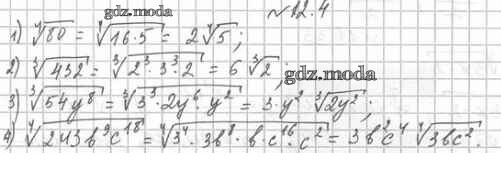 gdz.moda №12.4
1) ∜80 = ∜(16·5) = 2∜5;
2) ∛432 = ∛(2³·3³·2) = 6∛2;
gdz.moda
3) ∛(54y⁸) = ∛(3³·2y⁶·y²) = 3·y²·∛(2y²);
4) ∜(243b⁹c¹⁸) = ∜(3⁴·3b⁸·b·c¹⁶·c²) = 3b²c⁴∜(3bc²).